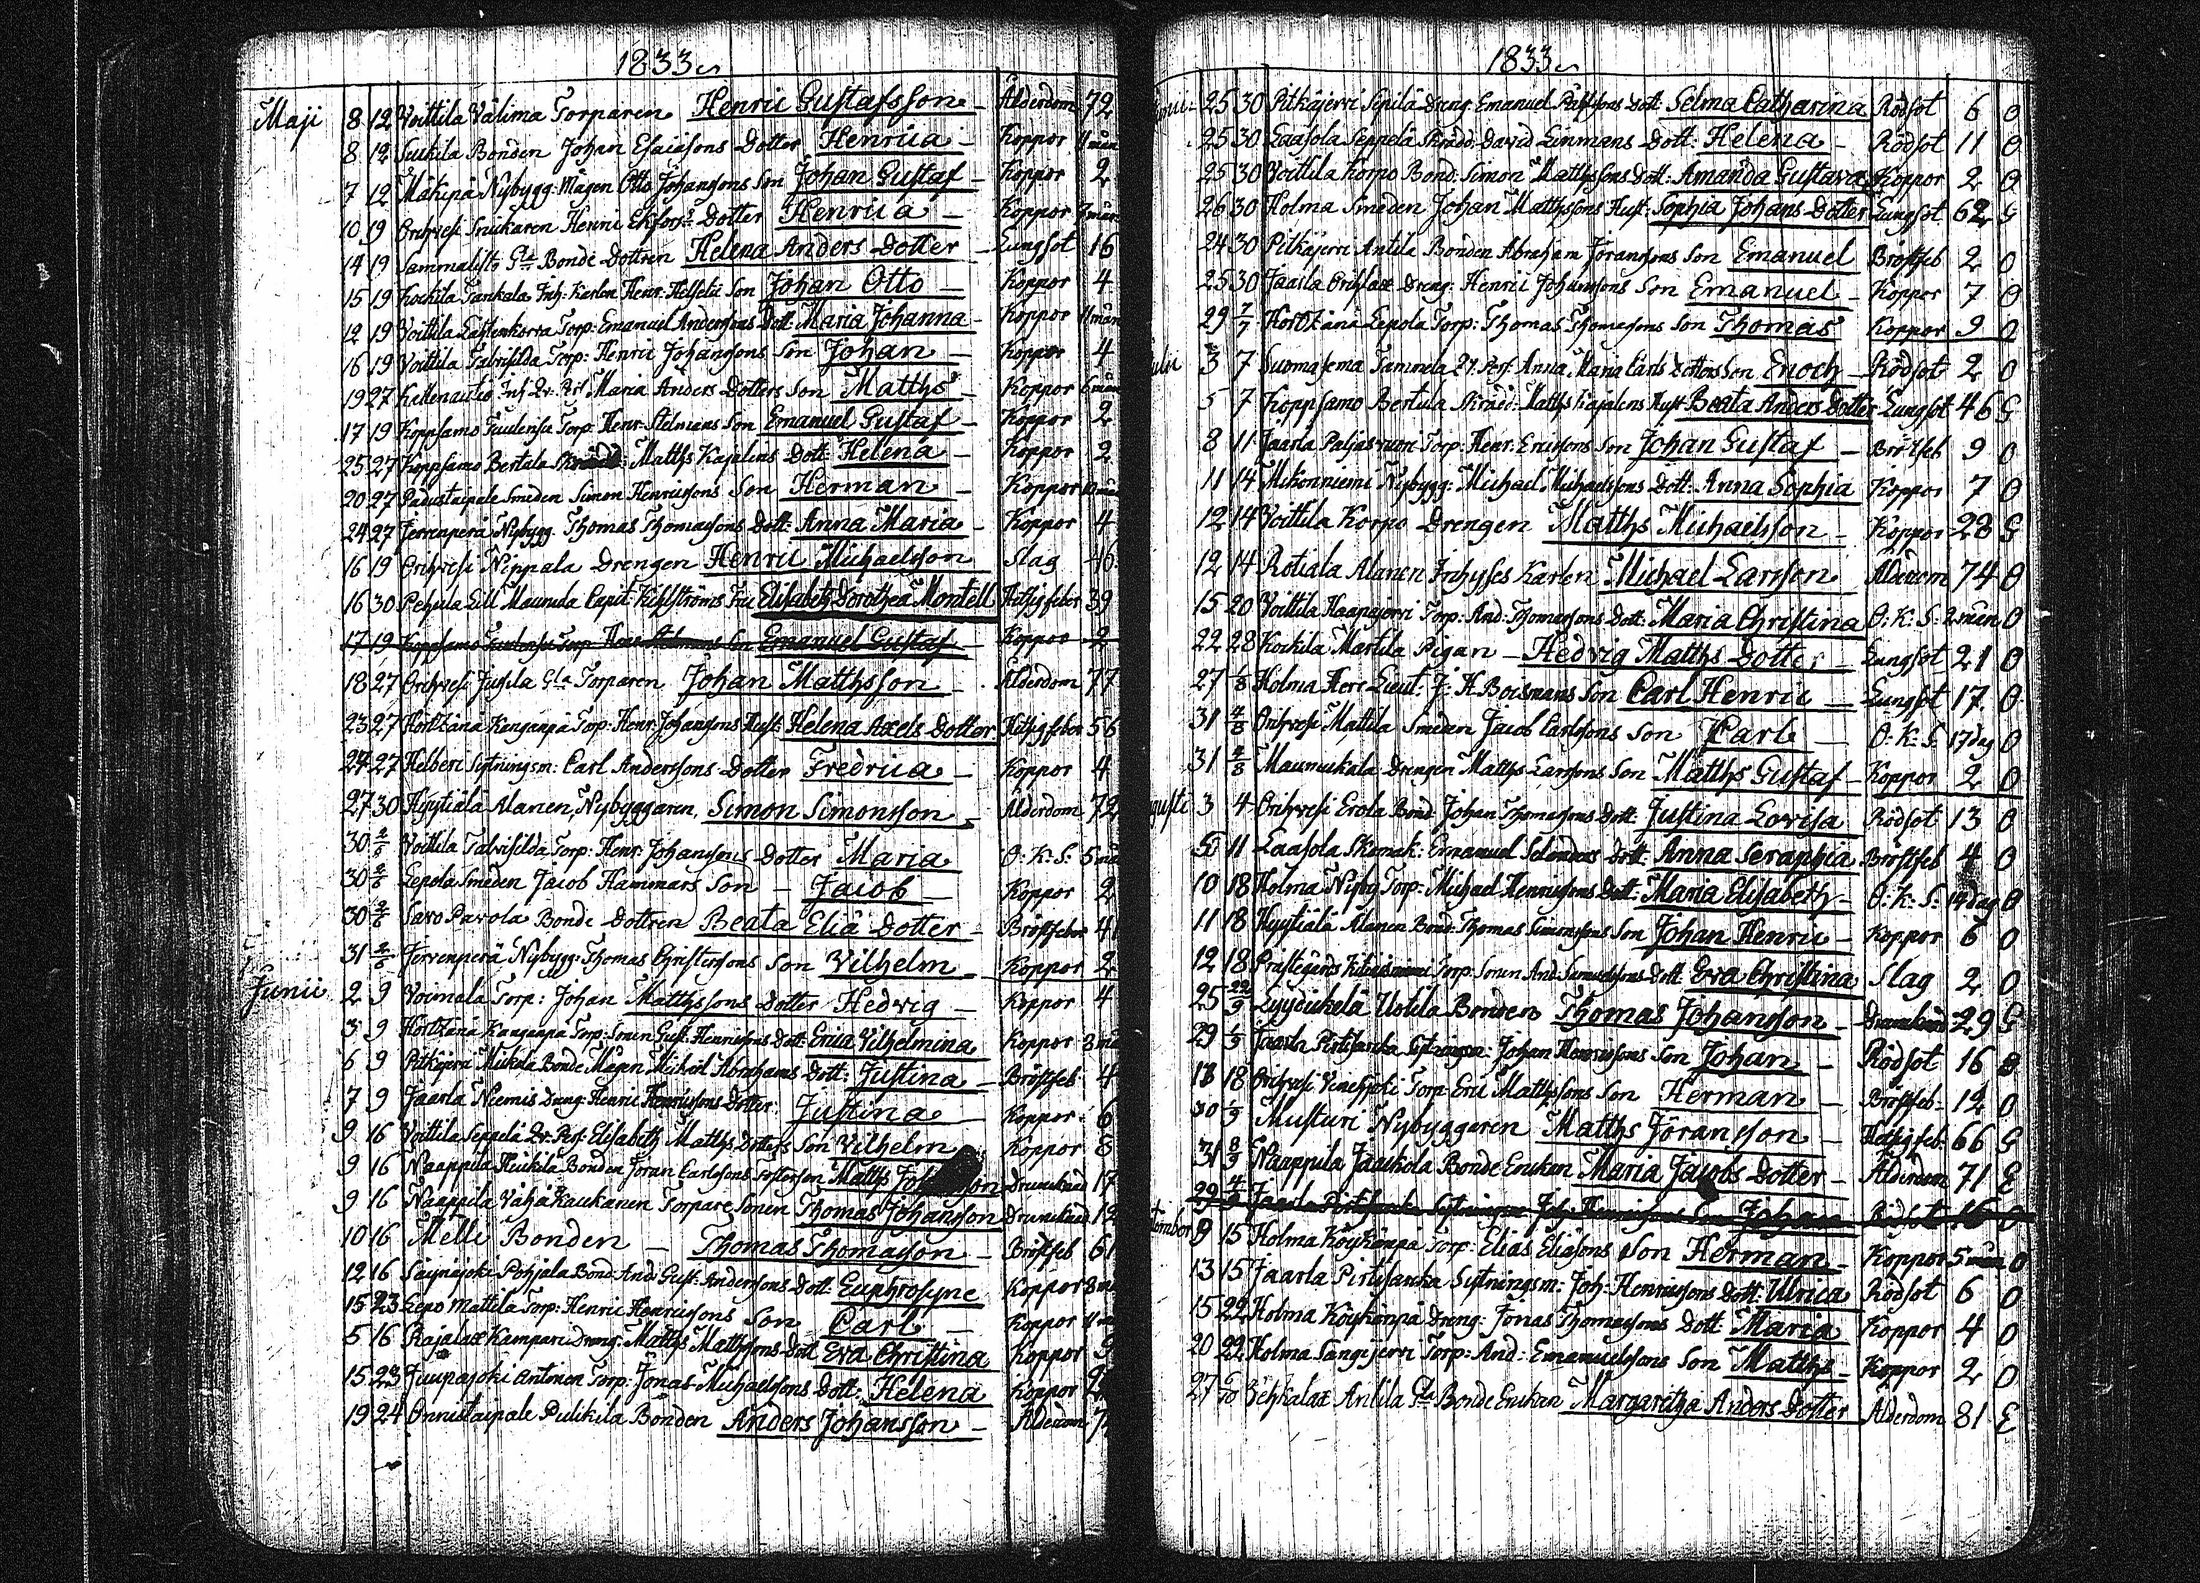 1833
Maji 8 12 Voittila Välima Torparen Henric Gustafsson Ålderdom 72
8 12 Bonden Johan Esaiäsons Dotter Henrica Koppor 11 mån
7 12 Nybygg: Mågen Otto Johanssons Son Johan Gustaf Koppor 2
10 19 Orihvesi Snickaren Henric Dotter Henrica Koppor
14 19 Sammalisto Gla Bonde Dottren Helena Anders Dotter Lungsot 16
15 19 Inh: Karlen Henr: Son Johan Otto Koppor 4
12 19 Voittila Torp: Emanuel Anderssons Dott: Maria Johanna Koppor 11 mån
16 19 Voittila Torp: Henric Johanssons Son Johan Koppor 4
19 27 Maria Anders Dotters Son Matths Koppor 6 mån
17 19 Koppsamo Torp: Henr: Stelmans Son Emanuel Gustaf Koppor 2
25 27 Koppsamo Bertula Matths Kajaléns Dott: Helena Koppor 2
20 27 Padustaipale Smeden Simon Henricssons Son Herman Koppor
24 27 Jervenperä Nybygg. Thomas Thomassons Dott: Anna Maria Koppor 4
16 19 Orihvesi Nippala Drengen Henric Michaelsson Slag 46
16 30 Pehula Lill Maunula Capit: Fru Elisabeth Dorothea Montell Hetsigfeber 39
17 19 Koppsamo Torp: Henr: Stelmans Son Emanuel Gustaf Koppor 2
18 27 Orihvesi Jussila Gla Torparen Johan Matthsson Ålderdom 77
23 27 Torp: Henr: Johanssons Hust: Helena Axels Dotter Hetsigfeber 56
24 27 Helberi Sytningsm: Carl Anderssons Dotter Fredrica Koppor 4
27 30 Hyytiälä Alanen, Nybyggaren, Simon Simonsson Ålderdom 72
30 2/6 Voittila Torp: Henr: Johanssons Dotter Maria O: K: S: 5 må
30 2/6 Lepola Smeden Jacob Hammars Son Jacob Koppor 2
30 2/6 Savo Parola Bonde Dottren Beata Eliä Dotter Bröstfeber 41
31 2/6 Jervenperä Nybygg: Thomas Christerssons Son Vilhelm Koppor 2
Junii 2 9 Voimala Torp: Johan Matthssons Dotter Hedvig Koppor 4
3 9 Torp: Sonen Gust: Henricssons Dott: Erica Vilhelmina Koppor 8 må
6 9 Pitkäjerri Mikkila Bonde Mågen Michael Abrahams Dott: Justina Bröstfeb: 4
7 9 Jaarla Niemis Dreng: Henric Henricssons Dotter Justina Koppor 6
9 16 Voittila Seppelä Elisabeth Matths Dotters Son Vilhelm Koppor 8
9 16 Naappila Heickilä Bonden Jöran Carlssons Fosterson Matths Drunknad 17
9 16 Naappila Vähä Kaukanen Torpare Sonen Thomas Johansson Drunknad 12
10 16 Melli Bonden Thomas Thomasson Bröstfeb 61
12 16 Saynäjoki Pohjala Bond: And: Gust: Anderssons Dott: Euphrosyne Koppor 8 må
15 23 Lepo Mattila Torp: Henric Henricssons Son Carl Koppor
5 16 Kampari Dreng: Matths Matthssons Dott Eva Christina Koppor 9
15 23 Juupajoki Antonen Torp: Jonas Michaelssons Dott: Helena Koppor 2
19 24 Onnistaipale Pulkkila Bonden Anders Johansson Ålderdom
1833
Junii 25 30 Pitkäjerri Sepilä Dreng: Emanuel Dott: Selma Catharina Rödsot 6 O
25 30 Laasola Seppelä Skrädd: David Linmans Dott: Helena Rödsot 11 O
25 30 Voittila Korpo Bond: Simon Matthssons Dott: Amanda Gustava Koppor 2 O
26 30 Holma Smeden Johan Matthssons Hust: Sophia Johans Dotter Lungsot 62 G
24 30 Pitkäjerri Antila Bonden Abraham Göranssons Son Emanuel Bröstfeb 2 O
25 30 Jaarla Dreng: Henric Johanssons Son Emanuel Koppor 7 O
29 7/7 Lepola Torp: Thomas Thomassons Son Thomas Koppor 9 O
Julii 3 7 Suomasema Tammela Anna Maria Carls Dotters Son Enoch Rödsot 2 O
5 7 Koppsamo Bertula Skrädd: Matths Kajalens Hust: Beata Anders Dotter Lungsot 46 G
8 11 Jaarla Paljasvuori Torp: Henr: Ericssons Son Johan Gustaf Bröstfeb 9 O
11 14 Mikonniemi Nybygg: Michael Michaelssons Dott: Anna Sophia Koppor 7 O
12 14 Voittila Korpo Drengen Matths Michaelsson Koppor 28 G
12 14 Rotiala Alanen Inhyses Karlen Michael Larsson Ålderdom 74 O
15 20 Voittila Haapajerri Torp: And: Thomassons Dott: Maria Christina O: K: S: 2 mån O
22 28 Kockila Martila Pigan Hedvig Matths Dotter Lungsot 21 O
27 1/8 Holma Herr Lieut: J: H Boismans Son Carl Henric Lungsot 17 O
31 4/8 Orihvesi Mattila Smeden Jacob Carlssons Son Carl O: K: S: 17 dag O
31 4/8 Maunukala Drengen Matths Larssons Son Matths Gustaf Koppor 2 O
Augusti 3 4 Orihvesi Erola Bond: Johan Thomassons Dott: Justina Lovisa Rödsot 13 O
5 11 Laasola Skomak: Emanuel Dott: Anna Seraphia Bröstfeb 4 O
10 18 Holma Nyby Torp: Michael Henricssons Dott: Maria Elisabeth O: K: S: 14 dag O
11 18 Hyytiälä Alanen Bond: Thomas Simonssons Son Johan Henric Koppor 6 O
12 18 Prästegårds Torp: Sonen And: Samuelssons Dott Eva Christina Slag 2 O
25 22/9 Uotila Bonden Thomas Johansson 29 G
29 1/9 Jaarla Pirtisarka Sytningsm: Johan Henricssons Son Johan Rödsot 16 O
13 18 Orihvesi Torp: Eric Matthssons Son Herman Bröstfeb 12 O
30 1/9 Musturi Nybyggeren Matths Jöransson Hetsigfeb: 66 G
31 8/9 Naappila Jaackola Bonde Enckan Maria Jacobs Dotter Ålderdom 71 E
29 4/9 Jaarla Pirtisarka Sytningsm: Joh: Henricssons Son Johan Rödsot 16 O
tember 9 15 Holma Köyskänpä Torp: Elias Eliäsons Son Herman Koppor 5 mån O
13 15 Jaarla Pirtisarka Sytningsm: Joh: Henricssons Dott: Ulrica Rödsot 6 O
15 22 Holma Köyskänpä Dreng: Jonas Thomassons Dott Maria Koppor 4 O
20 22 Holma Sangijerri Torp: And: Emanuelssons Son Matths Koppor 2 O
27 6/10 Anttila Gla Bonde Enckan Margaretha Anders Dotter Ålderdom 81 E